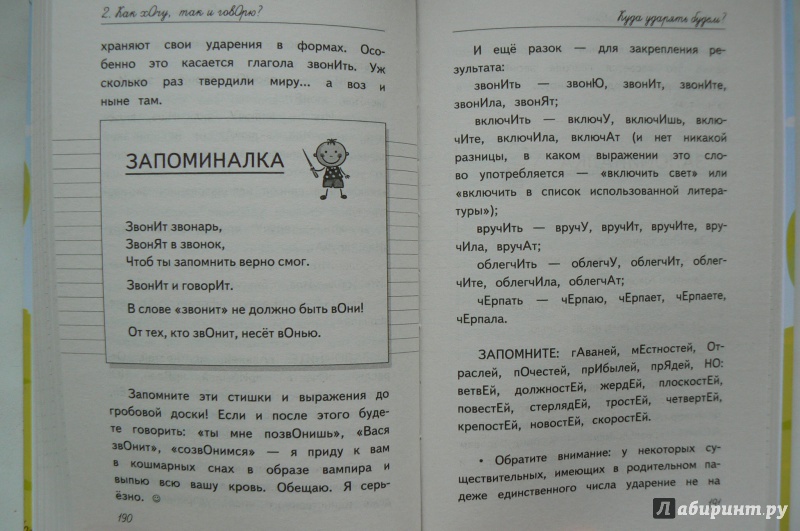 2. Как хОчу, так и говОрю?
храняют свои ударения в формах. Осо-
бенно это касается глагола звонИть. Уж
сколько раз твердили миру... а воз и
ныне там.
ЗАПОМИНАЛКА
ЗвонИт звонарь,
ЗвонЯт в звонок,
Чтоб ты запомнить верно смог.
ЗвонИт и говорИт.
В слове «звонит» не должно быть вОни!
От тех, кто звОнит, несёт вОнью.
Запомните эти стишки и выражения до
гробовой доски! Если и после этого буде-
те говорить: «ты мне позвОнишь», «Вася
звОнит», «созвОнимся» — я приду к вам
в кошмарных снах в образе вампира и
выпью всю вашу кровь. Обещаю. Я серь-
ёзно. ☺
190
Куда ударять будем?
И ещё разок — для закрепления ре-
зультата:
звонИть — звонЮ, звонИт, звонИте,
звонИла, звонЯт;
включИть — включУ, включИшь, вклю-
чИте, включИла, включАт (и нет никакой
разницы, в каком выражении это сло-
во употребляется — «включить свет» или
«включить в список использованной литера-
туры»);
вручИть — вручУ, вручИт, вручИте, вру-
чИла, вручАт;
облегчИть — облегчУ, облегчИт, облег-
чИте, облегчИла, облегчАт;
чЕрпать — чЕрпаю, чЕрпает, чЕрпаете,
чЕрпала.
ЗАПОМНИТЕ: гАваней, мЕстностей, От-
раслей, пОчестей, прИбылей, прЯдей, НО:
ветвЕй, должностЕй, жердЕй, плоскостЕй,
повестЕй, стерлядЕй, тростЕй, четвертЕй,
крепостЕй, новостЕй, скоростЕй.
• Обратите внимание: у некоторых су-
ществительных, имеющих в родительном па-
деже единственного числа ударение не на
191
Лабиринт.ру